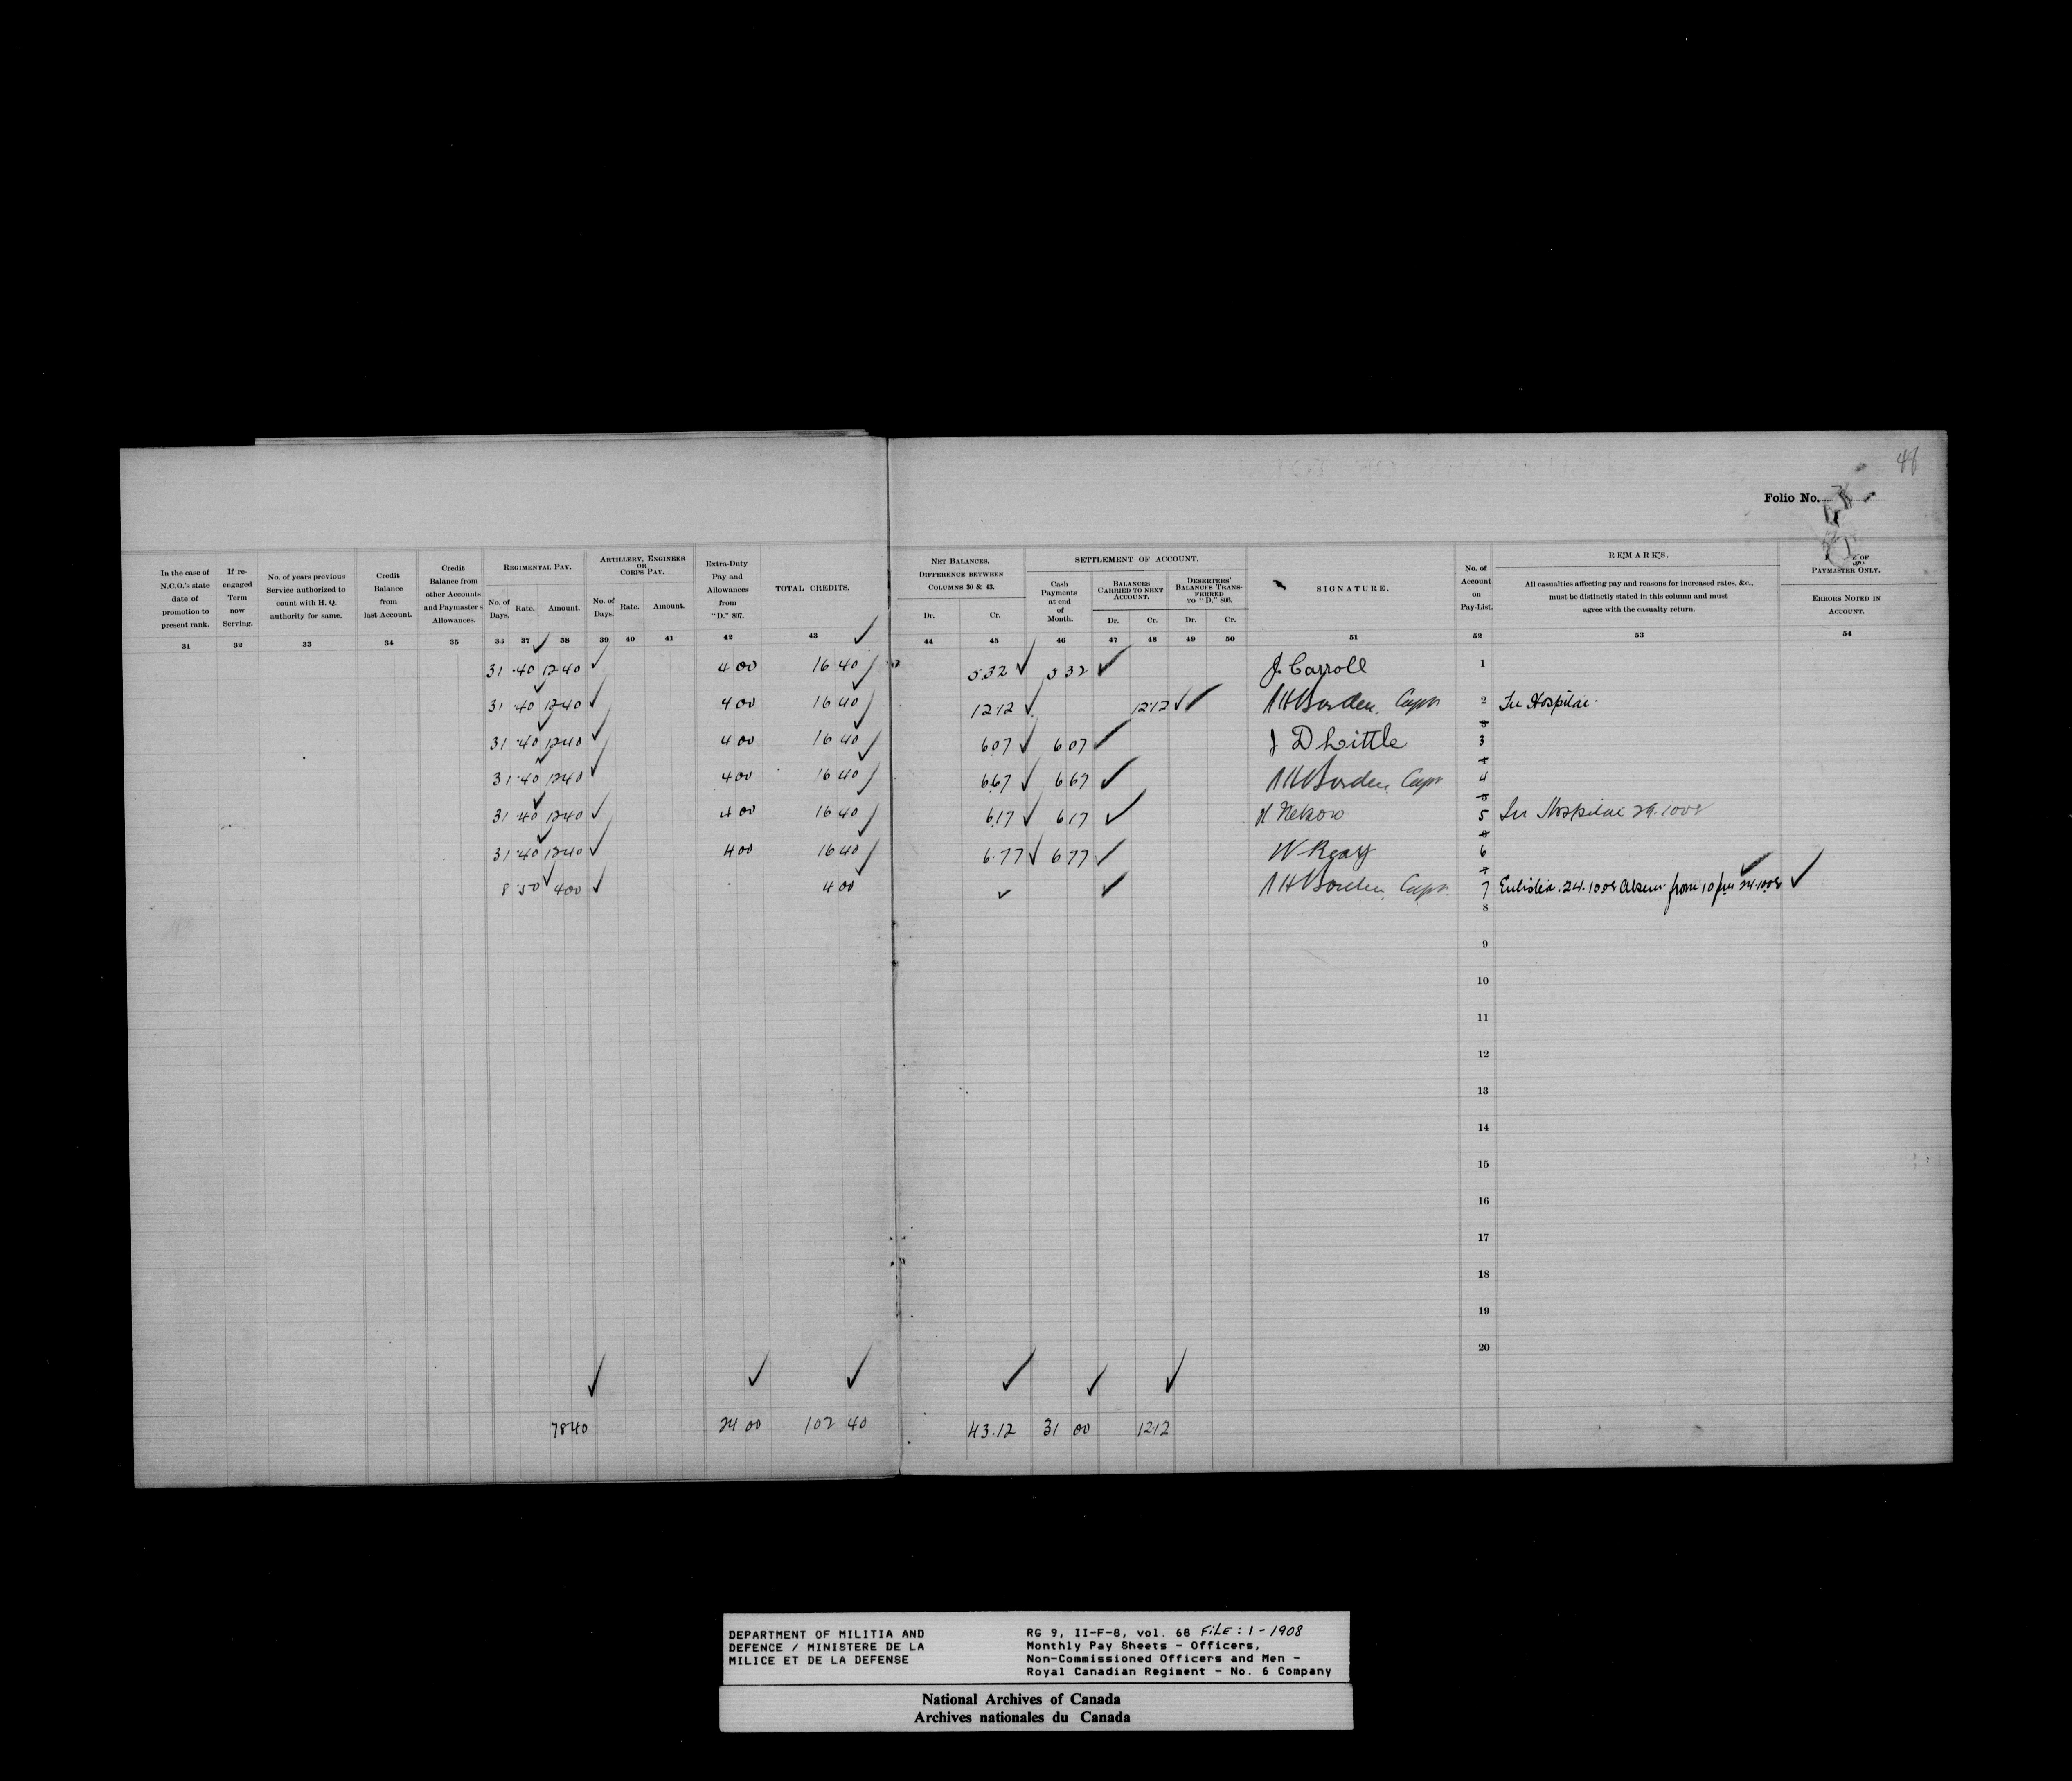 48
Folio No.
In the case of N.C.O.'s state date of promotion to present rank.
If re-engaged Term now Serving.
No. of years previous Service authorized to count with H. Q. authority for same.
Credit Balance from last Account.
Credit Balance from other Accounts and Paymaster's Allowances.
REGIMENTAL PAY.
No. of Days. Rate. Amount.
ARTILLERY, ENGINEER OR CORPS PAY.
No. of Days. Rate. Amount.
Extra-Duty Pay and Allowances from "D." 807.
TOTAL CREDITS.
NET BALANCES. DIFFERENCE BETWEEN COLUMNS 30 & 43.
Dr. Cr.
SETTLEMENT OF ACCOUNT.
Cash Payments at end of Month.
BALANCES CARRIED TO NEXT ACCOUNT.
Dr. Cr.
DESERTERS' BALANCES TRANSFERRED TO "D." 806.
Dr. Cr.
SIGNATURE.
No. of Account on Pay-List.
REMARKS.
All casualties affecting pay and reasons for increased rates, &c., must be distinctly stated in this column and must agree with the casualty return.
OF PAYMASTER ONLY.
ERRORS NOTED IN ACCOUNT.
31 32 33 34 35 36 37 38 39 40 41 42 43 44 45 46 47 48 49 50 51 52 53 54
31 .40 12 40 4 00 16 40 5.32 5 32 J. Carroll 1
31 .40 12 40 4 00 16 40 12.12 12.12 Borden, Capt 2 In Hospital.
31 .40 12 40 4 00 16 40 6.07 6 07 J D Little 3
31 .40 12 40 4 00 16 40 6.67 6 67 Borden, Capt 4
31 .40 12 40 4 00 16 40 6.17 6 17 5 In Hospital 29.10 08
31 .40 12 40 4 00 16 40 6.77 6 77 6
8 .50 4 00 4 00 Borden, Capt. 7 Enlisted 24.10 08 Absent from 10 pm
8
9
10
11
12
13
14
15
16
17
18
19
20
78 40 24 00 102 40 43.12 31 00 12 12
DEPARTMENT OF MILITIA AND
DEFENCE / MINISTERE DE LA
MILICE ET DE LA DEFENSE
RG 9, II-F-8, vol. 68 FILE: 1-1908
Monthly Pay Sheets - Officers,
Non-Commissioned Officers and Men -
Royal Canadian Regiment - No. 6 Company
National Archives of Canada
Archives nationales du Canada